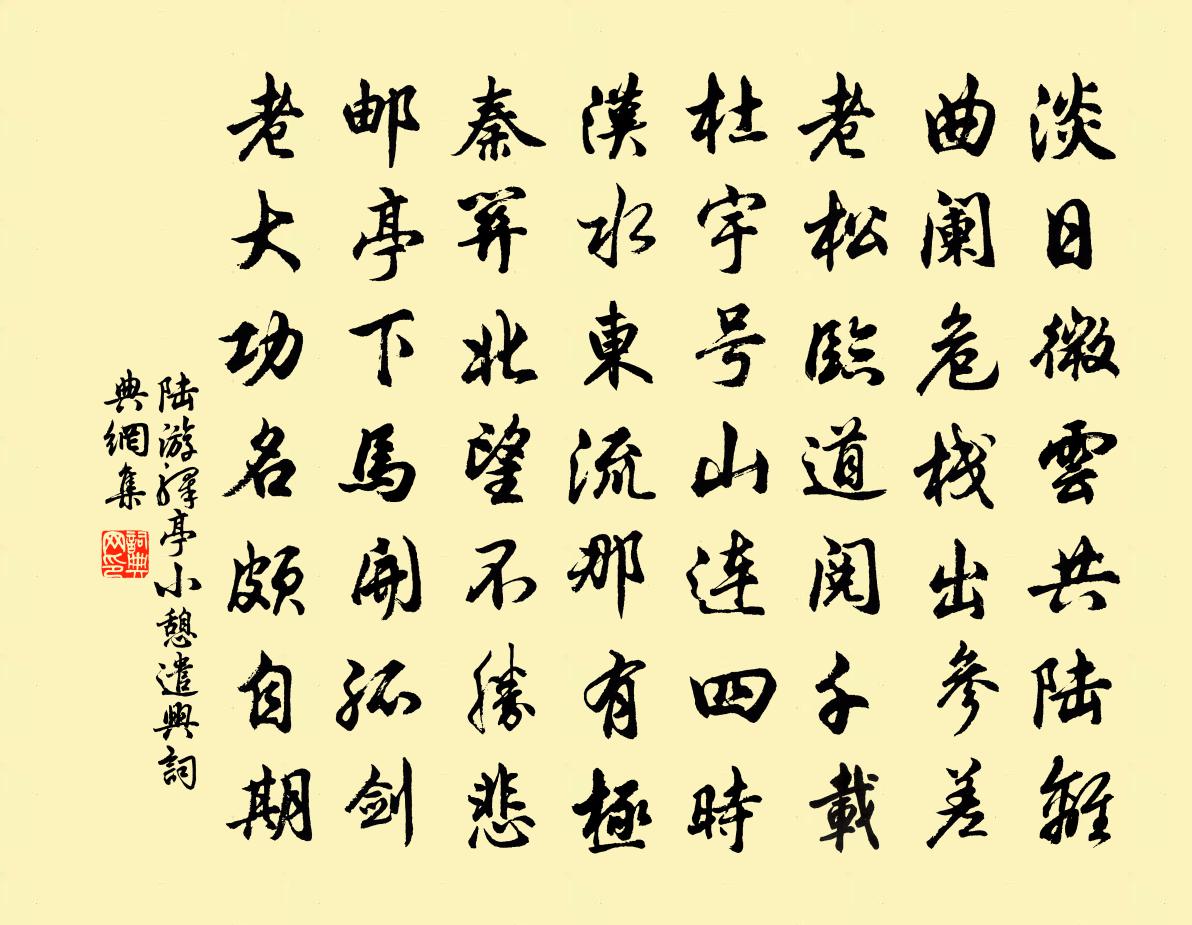 淡日微雲共陸離
曲闌危棧出參差
老松臨道閱千載
杜宇号山連四時
漢水東流那有極
秦關北望不勝悲
邮亭下馬開孤剑
老大功名頗自期
陆游驛亭小憩遣興詞
典網集
詞典网印